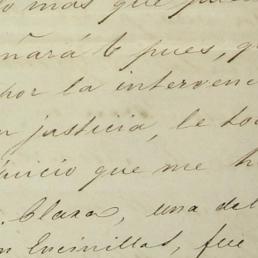 o mas que pue
ñará b pues, q
por la intervenc
n justicia, le to
juicio que me h
. Clara, una del
n Encinillas, fue